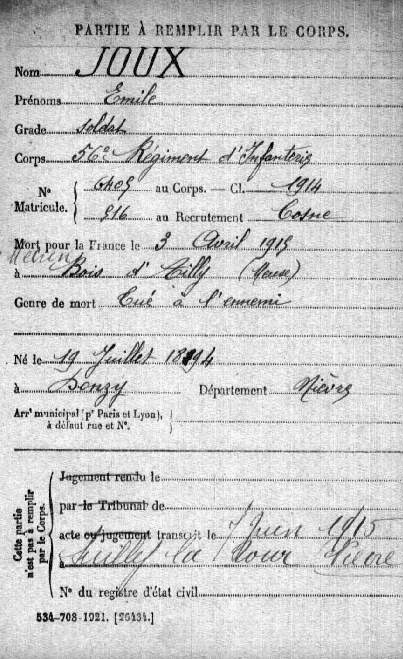 PARTIE À REMPLIR PAR LE CORPS.
Nom JOUX
Prénoms Emile
Grade soldat
Corps 56e Régiment d'Infanterie
Nº Matricule. 6405 au Corps. — Cl. 1914
916 au Recrutement Cosne
Mort pour la France le 3 Avril 1915
à Bois d'Ailly (Meuse)
Genre de mort Tué à l'ennemi
Né le 19 Juillet 1894
à Donzy Département Nièvre
Arrt municipal (pr Paris et Lyon),
à défaut rue et Nº.
Cette partie n'est pas à remplir par le Corps.
Jugement rendu le
par le Tribunal de
acte ou jugement transcrit le 7 Juin 1915
à Suilly la Tour Nièvre
Nº du registre d'état civil
534-708-1921. [26434.]